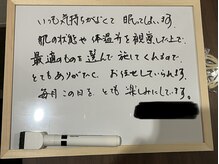 いつも気持ちがよくて 眠ってしまいます
肌の状態や体調等を観察した上で、
最適なものを選んで 施してくれるので
とてもありがたく、お任せしていられます。
毎月この日を、とても楽しみにしています。